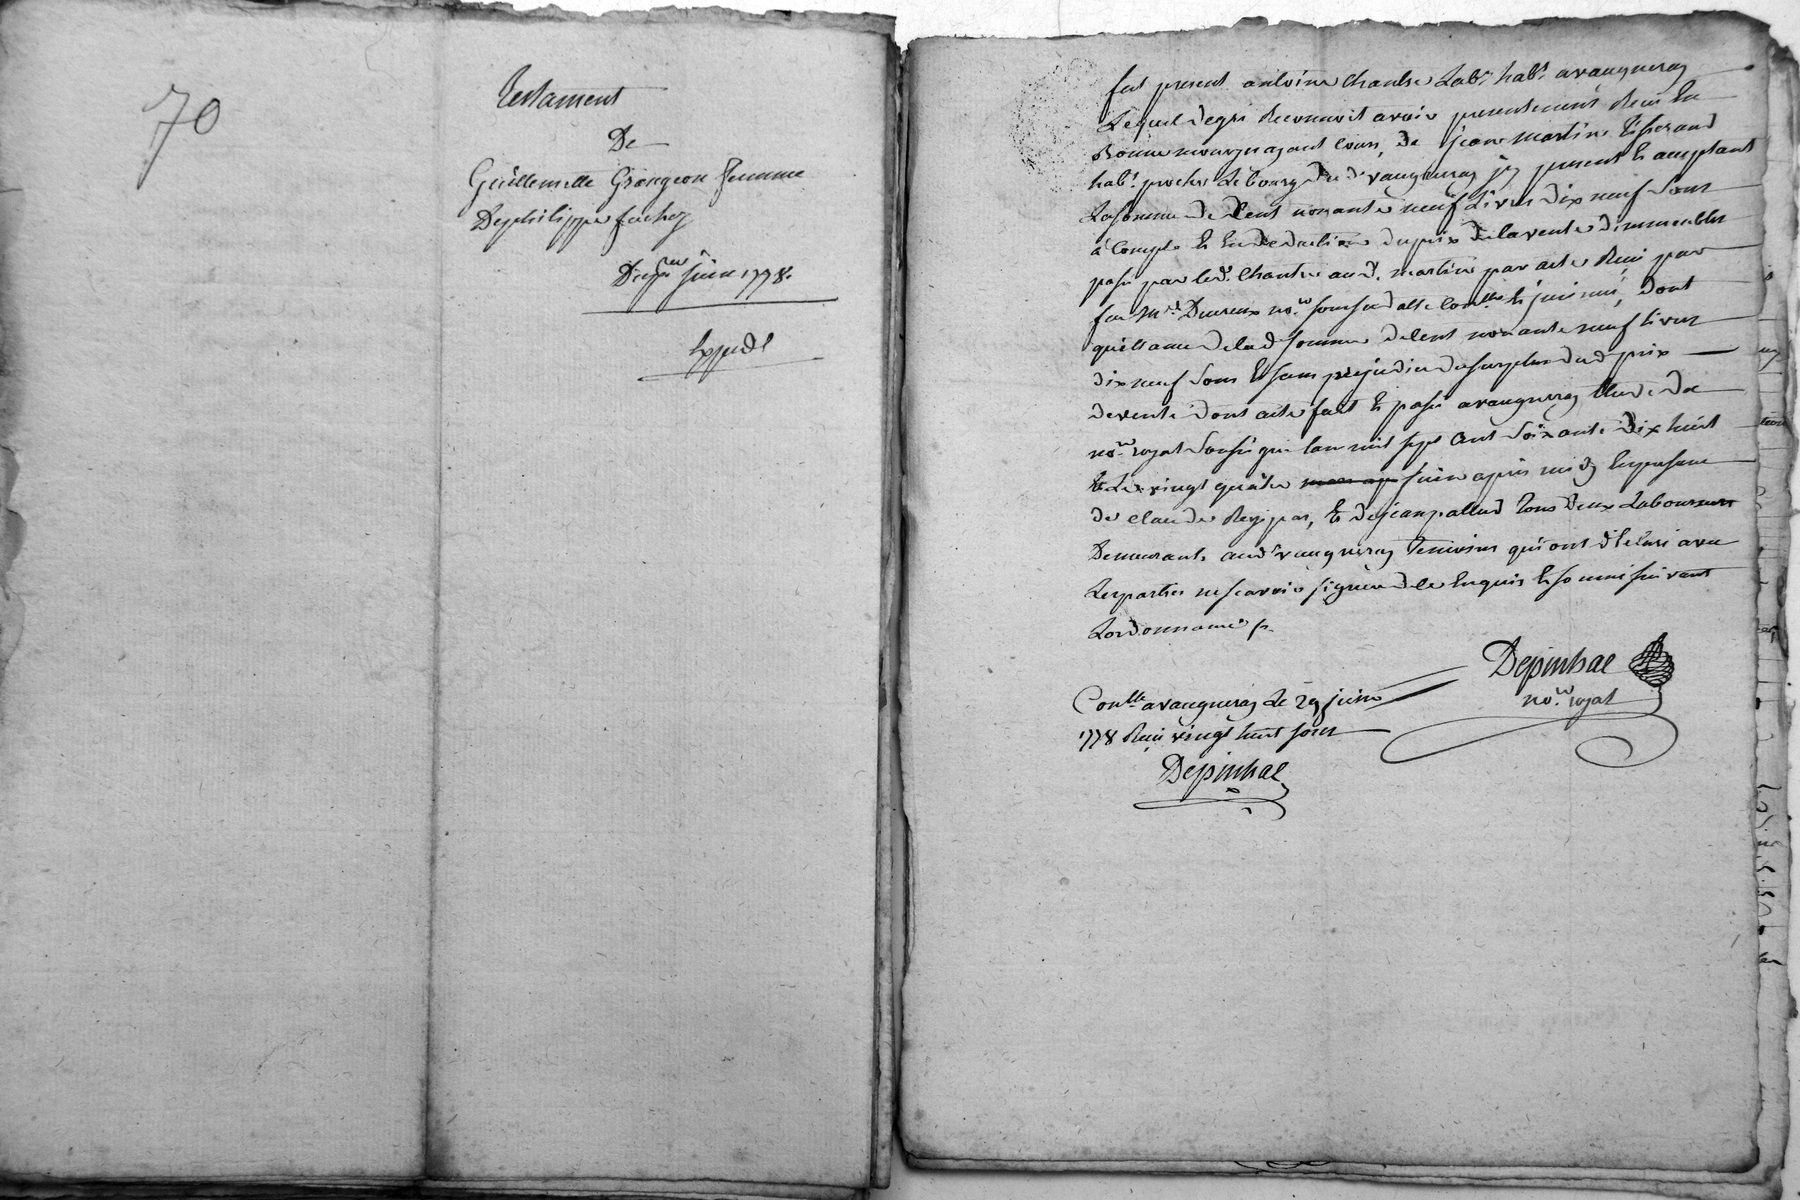 70
Testament
De
Guillemette Grangeon femme
De philippe
Du per juin 1778.
Expedé
fut present antoine Chantre Labr. habt. a vaugneray
Lequel de gré Reconnoit avoir presentement Receu En
Bonne monoye ayant Cours, de jean Martin tisserand
habt. proche Le bourg dud. vaugneray icy present & acceptant
La somme de Cent nonante neuf Livres dix neuf sous
à Compte & En deduction du prix de la vente d'immeubles
passé par led. Chantre aud. martin par acte Receu par
feu Me. no.re &
quittance de lad. somme de Cent nonante neuf Livres
dix neuf sous & sans prejudice du surplus dud. prix
de vente dont acte fait & passé a vaugneray Etude du
no.re royal soussigné l'an mil sept Cent soixante dix huit
& Le vingt quatre juin après midy En presence
de claude & de jean tous deux Laboureurs
Demeurants aud. vaugneray temoins qui ont declaré avec
Les parties ne scavoir signer de ce Enquis & sommés suivant
L'ordonnance /.
Depinhac
no.re royal
Conllé a vaugneray Le 29 juin
1778 Receu vingt huit sous
Depinhac